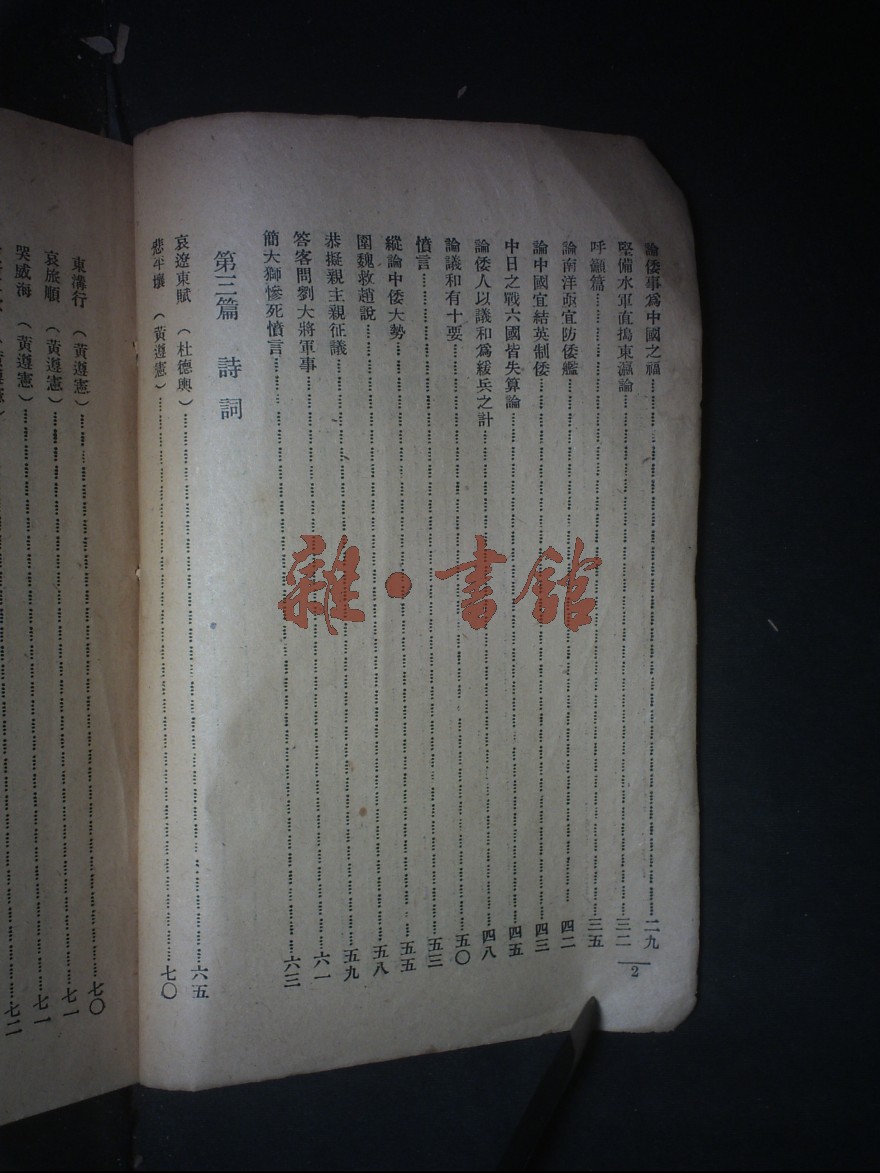 論倭事爲中國之福……二九
堅備水軍直搗東瀛論……三二
呼籲篇……三五
論南洋亟宜防倭艦……四二
論中國宜結英制倭……四三
中日之戰六國皆失算論……四五
論倭人以議和爲緩兵之計……四八
論議和有十要……五〇
憤言……五三
縱論中倭大勢……五五
圍魏救趙說……五八
恭擬親主親征議……五九
答客問劉大將軍事……六一
簡大獅慘死憤言……六三
第三篇 詩詞
哀遼東賦（杜德輿）……六五
悲平壤（黃遵憲）……七〇
2
東溝行（黃遵憲）……七〇
哀旅順（黃遵憲）……七一
哭威海（黃遵憲）……七一
七二
雜·書館